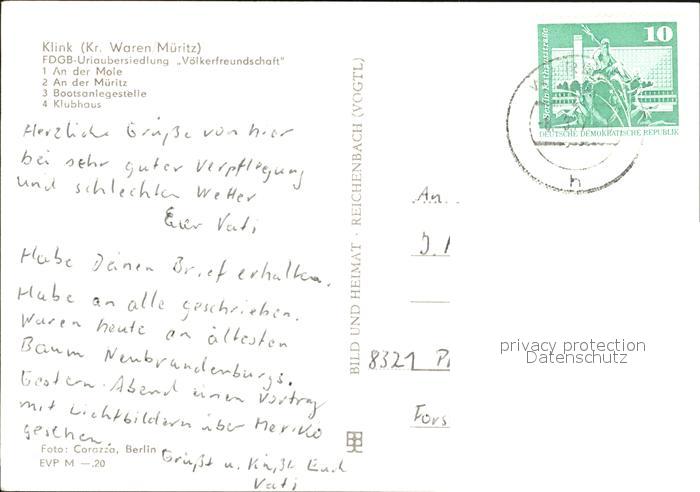 Klink (Kr. Waren Müritz)
FDGB-Urlaubersiedlung „Völkerfreundschaft"
1 An der Mole
2 An der Müritz
3 Bootsanlegestelle
4 Klubhaus
Herzliche Grüße von hier
bei sehr guter Verpflegung
und schlechten Wetter
Euer Vati
Habe Deinen Brief erhalten.
Habe an alle geschrieben.
Waren heute am ältesten
Baum Neubrandenburgs.
Gestern Abend einen Vortrag
mit Lichtbildern über Mexiko
gesehen.
Grüßt u. Küßt Euch
Vati
Foto: Corazza, Berlin
EVP M —.20
BILD UND HEIMAT · REICHENBACH (VOGTL)
10
Berlin, Rathausstraße
DEUTSCHE DEMOKRATISCHE REPUBLIK
h
An
J.
8321
Fors
privacy protection
Datenschutz